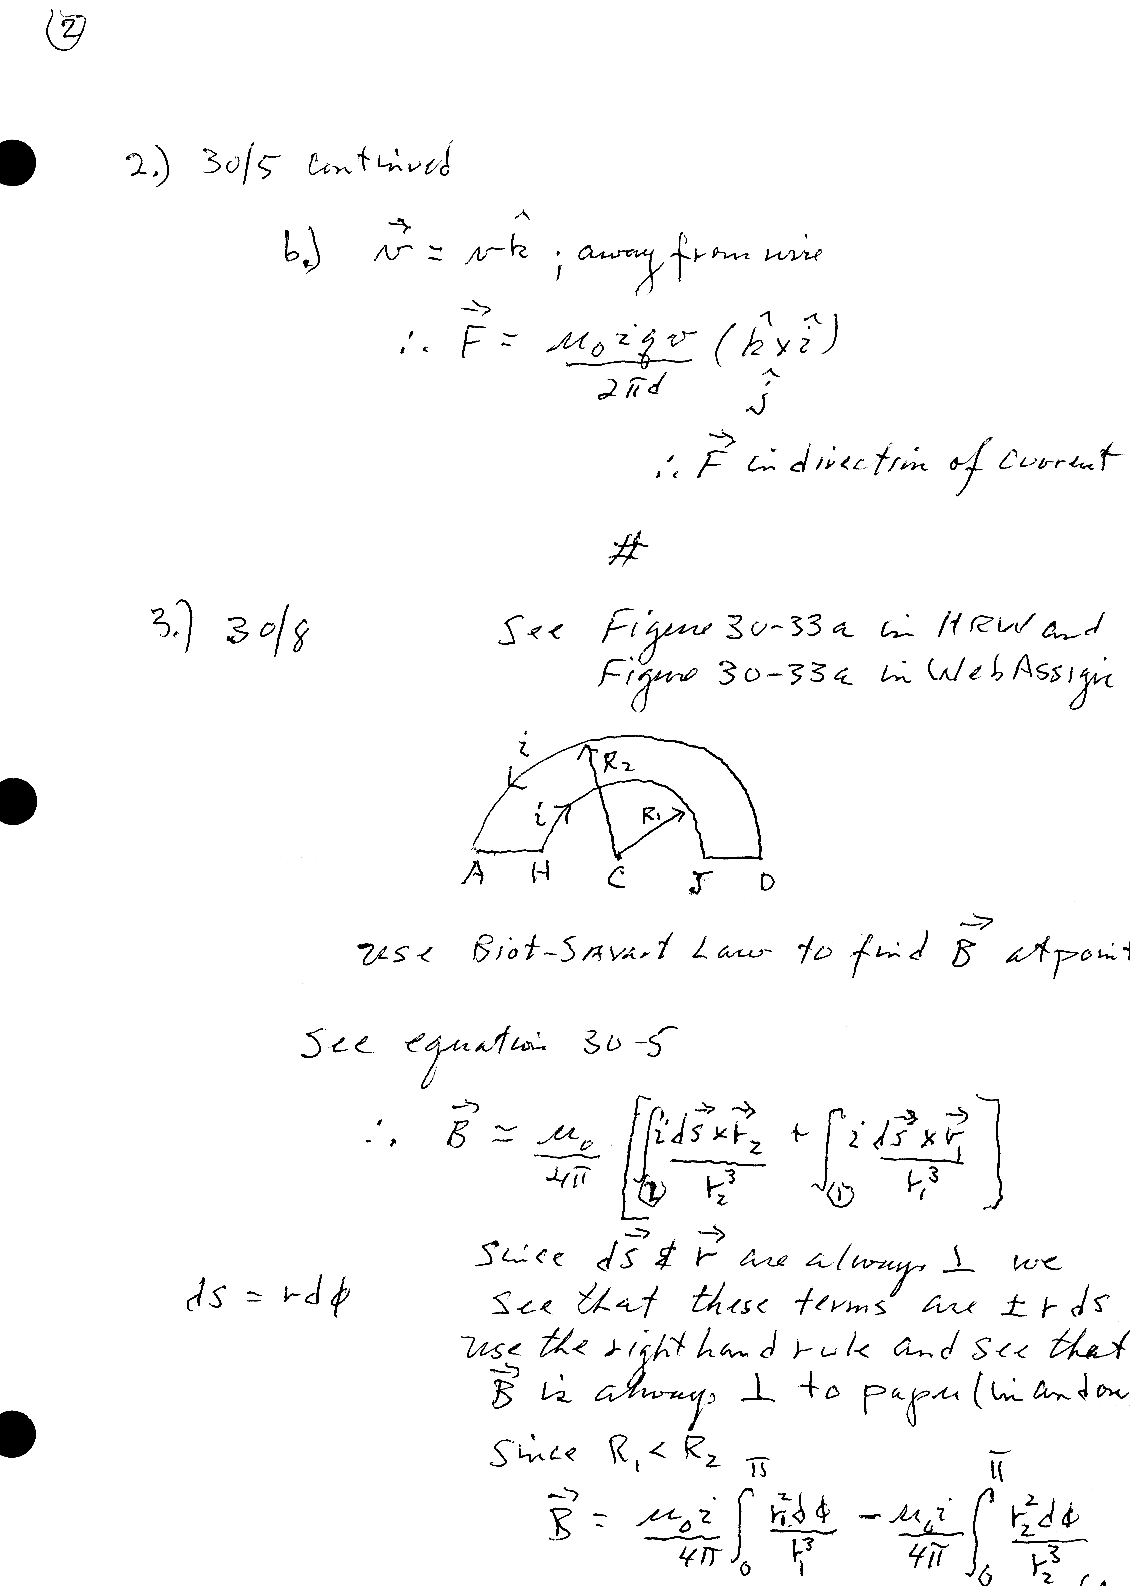 2
2.) 30/5 continued
b.) v⃗ = v k̂ ; away from wire
∴ F⃗ = μ₀ i q v / 2πd (k̂ × î)
ĵ
∴ F⃗ in direction of current
#
3.) 30/8 See Figure 30-33a in HRW and
Figure 30-33a in WebAssign
i
R₂
i R₁
A H C J D
use Biot-Savart Law to find B⃗ at point
See equation 30-5
∴ B⃗ = μ₀/4π [ ∫② i ds⃗ × r⃗₂ / r₂³ + ∫① i ds⃗ × r⃗₁ / r₁³ ]
Since ds⃗ & r⃗ are always ⊥ we
ds = r dϕ see that these terms are ± r ds
use the right hand rule and see that
B⃗ is always ⊥ to paper (in and ou
Since R₁ < R₂
B⃗ = μ₀ i / 4π ∫₀^π r₁² dϕ / r₁³ − μ₀ i / 4π ∫₀^π r₂² dϕ / r₂³